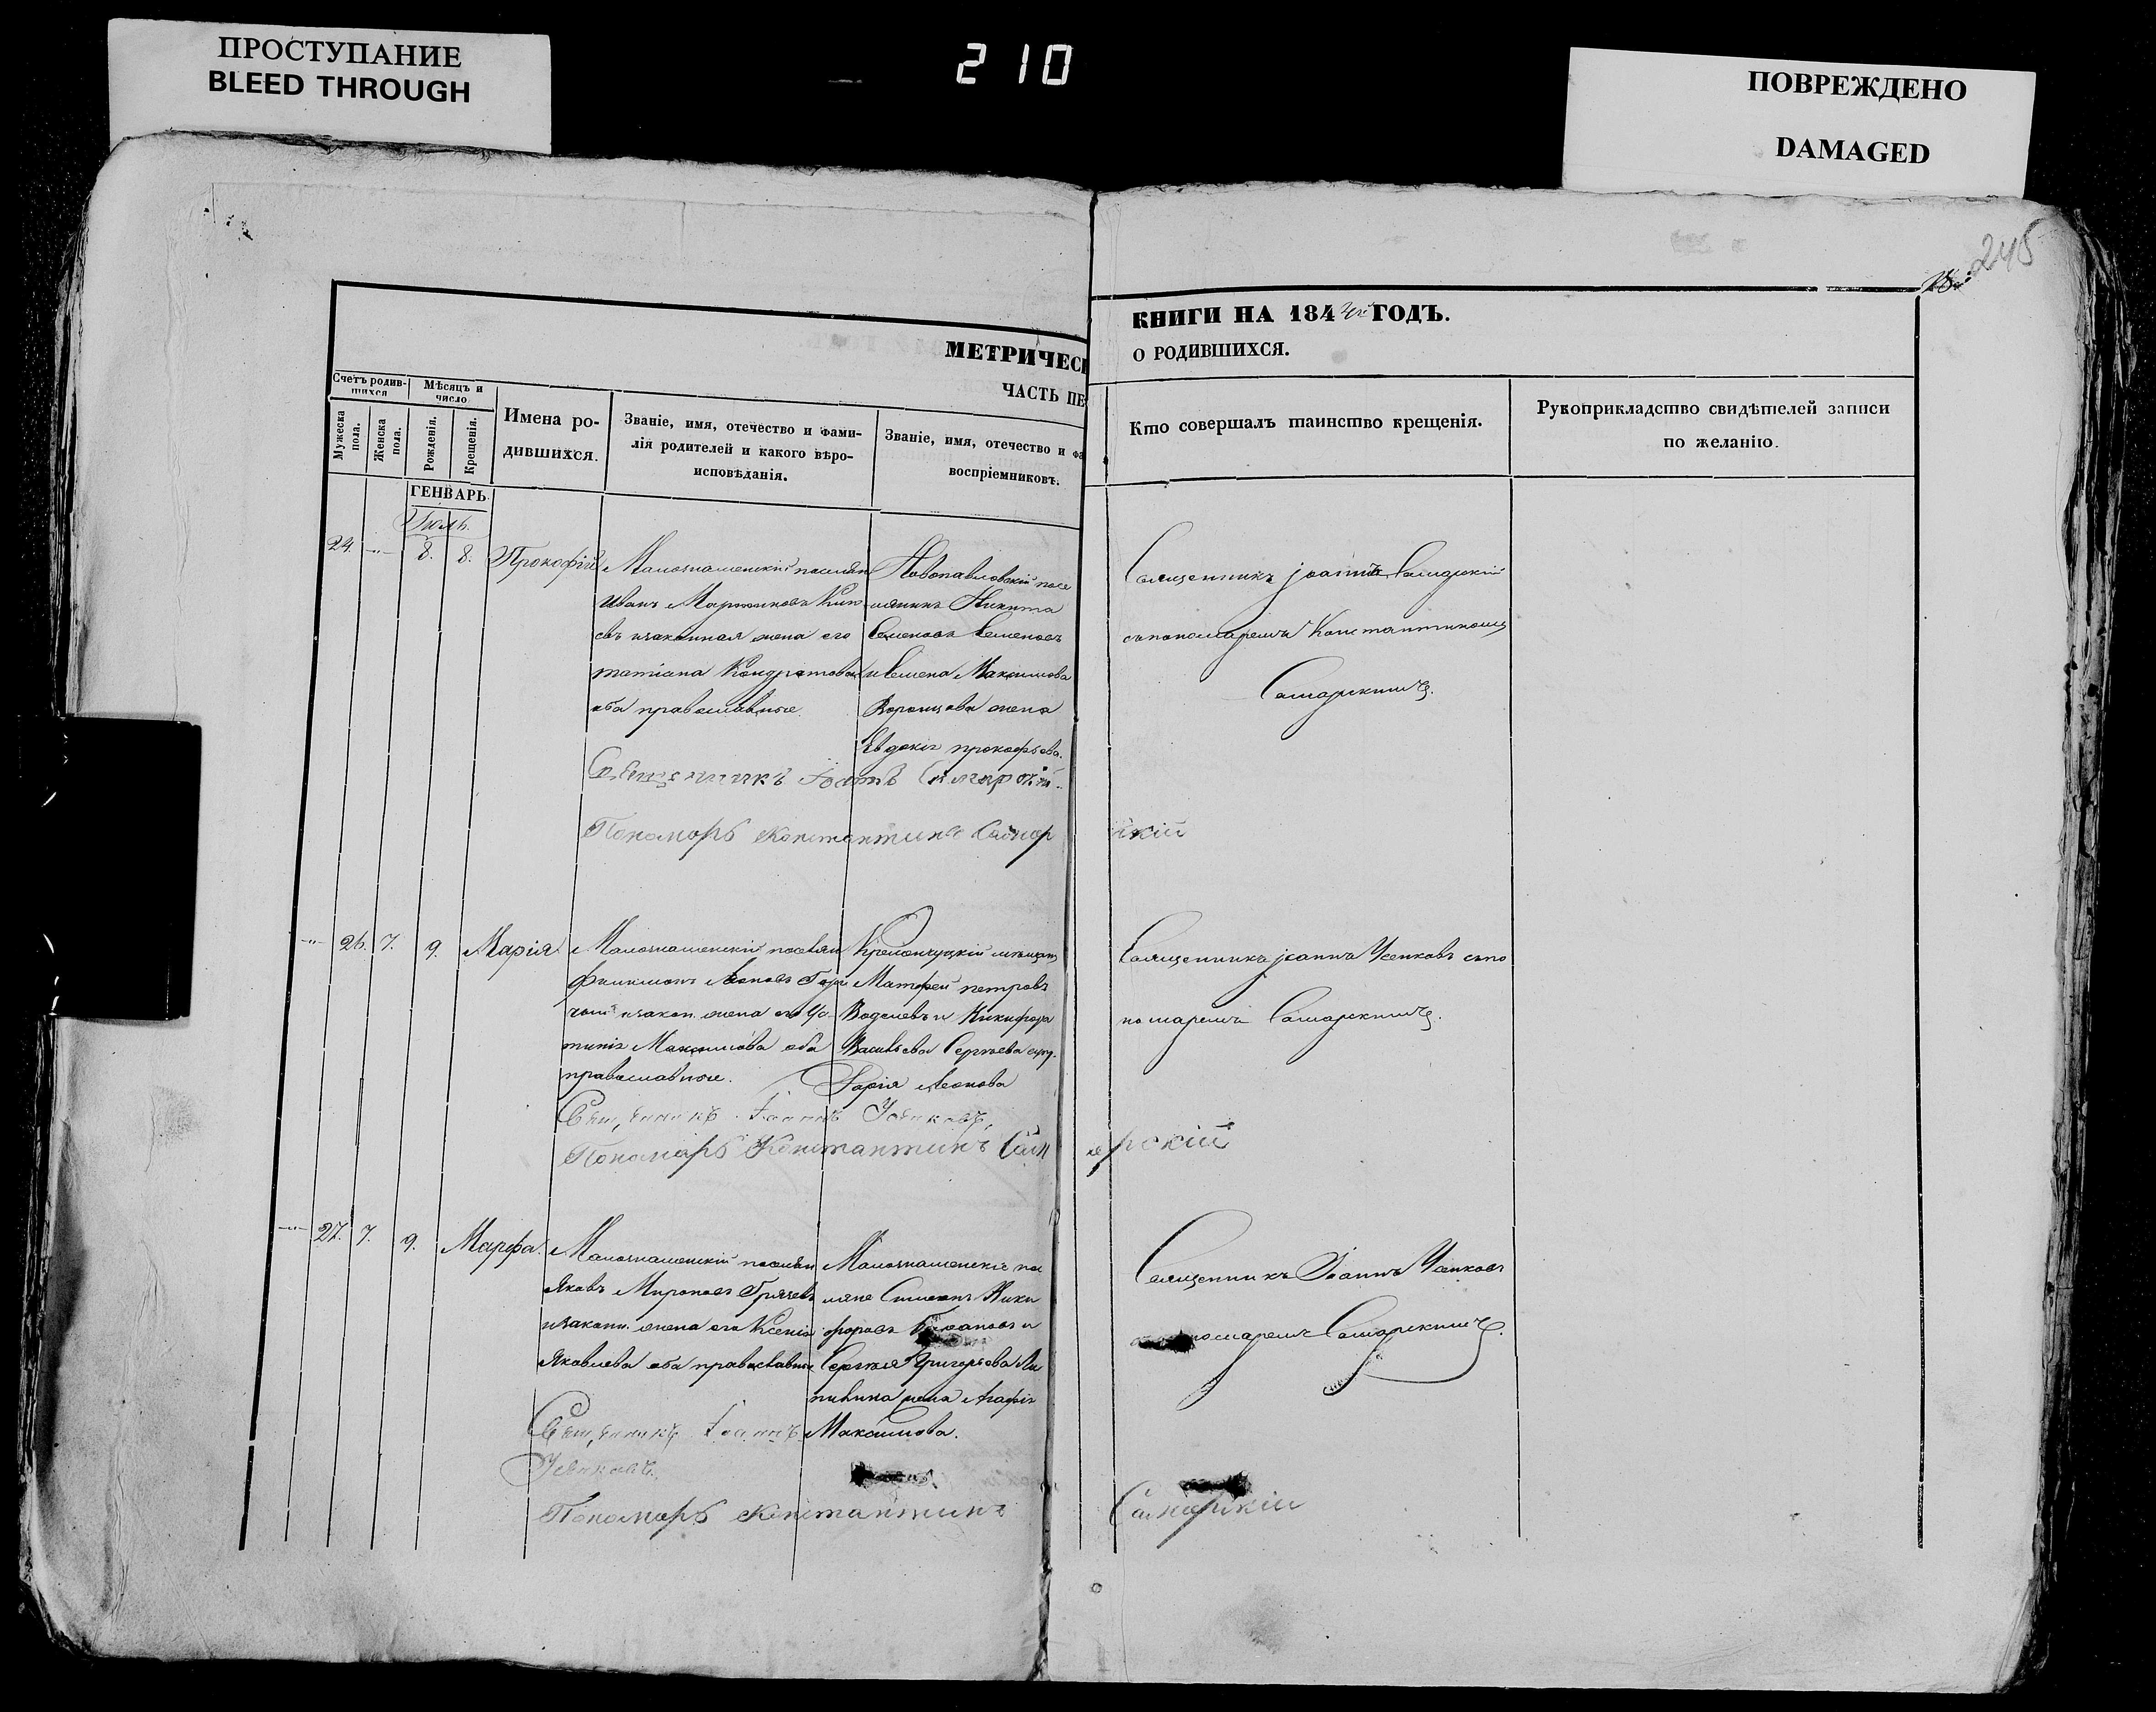 ПРОСТУПАНИЕ
BLEED THROUGH
210
ПОВРЕЖДЕНО
DAMAGED
245
МЕТРИЧЕСК
ЧАСТЬ ПЕ
КНИГИ НА 184 ГОДЪ.
О РОДИВШИХСЯ.
Счетъ родившихся
Мѣсяцъ и число
Мужеска пола.
Женска пола.
Рожденія.
Крещенія.
Имена родившихся.
Званіе, имя, отечество и фами-
лія родителей и какого вѣро-
исповѣданія.
Званіе, имя, отечество и фа
воспріемниковъ.
Кто совершалъ таинство крещенія.
Рукоприкладство свидѣтелей записи
по желанію.
ГЕНВАРЬ
Июль.
24. 8. 8. Прокофій
Малознаменскій поселян
Иванъ
законная жена его
татіана Кондратова
оба православные.
Новопавловскій посе
лянинъ Никита
Семеновъ Семеновъ
Максимова
жена
Евдокія прокофьева.
Священникъ Іоаннъ Самарскій
съ пономаремъ Константиномъ
Самарскимъ.
Священникъ Іоаннъ Самарскій
Пономарь Константинъ Самарскій
26. 7. 9. Марія
Малознаменскій поселян
Филимонъ Леоновъ
закон. жена его Ус-
тинія Максимова оба
православные.
Кременчуцкій мѣщан
Матфей петровъ
и Никифора
Васильева Сергѣева
Дарія Леонова
Священникъ Іоаннъ Усенковъ съ по
номаремъ Самарскимъ.
Священникъ Іоаннъ Усенковъ.
Пономарь Константинъ Самарскій
27. 7. 9. Марфа.
Малознаменскій поселян
Яковъ Мироновъ
и законн. жена его Ксенія
Яковлева оба православные
Малознаменскіе посе
ляне Симеонъ Ники
форовъ
Сергѣя Григорьева
жена Агафія
Максимова.
Священникъ Іоаннъ Усенковъ
пономаремъ Самарскимъ.
Священникъ Іоаннъ
Усенковъ.
Пономарь Константинъ Самарскій